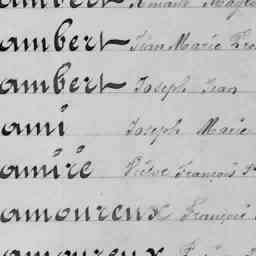 ambert Armand
ambert Jean Marie
ambert Joseph Jean
ami Joseph Marie
amiré Pierre François
amoureux François
amoureux